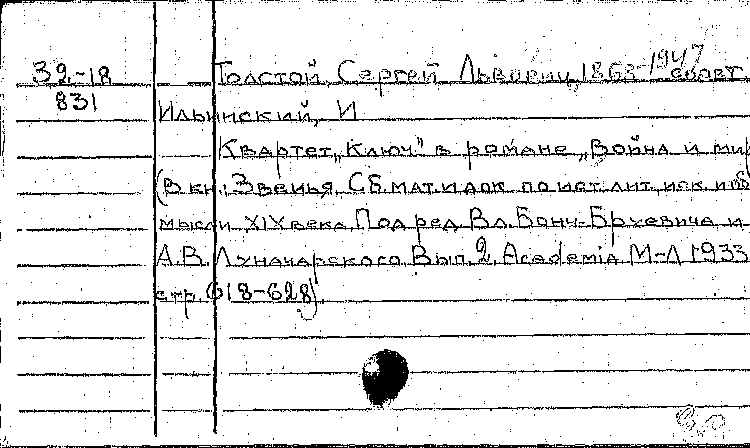 32-18 Толстой, Сергей Львович, 1863-1947
831
Ильинский, И
Квартет „Ключ" в романе „Война и мир
(В кн.: Звенья. Сб. мат. и док. по ист. лит., иск. и об
мысли XIX века. Под ред. Вл. Бонч-Бруевича и
А.В. Луначарского. Вып. 2. Academia М-Л 1933
стр. 618-628).